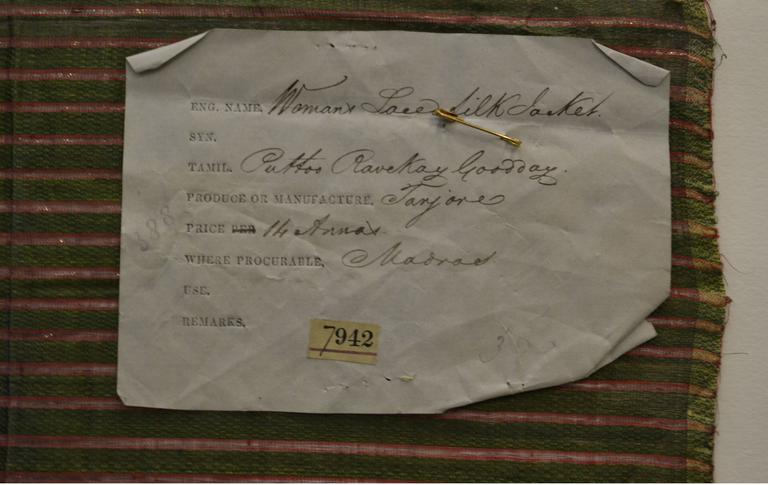 ENG. NAME. Woman's Laced Silk Jacket.
SYN.
TAMIL. Puttoo Ravekay Goodday.
PRODUCE OR MANUFACTURE. Tanjore
PRICE PER 14 Annas.
WHERE PROCURABLE. Madras
USE.
REMARKS.
7942